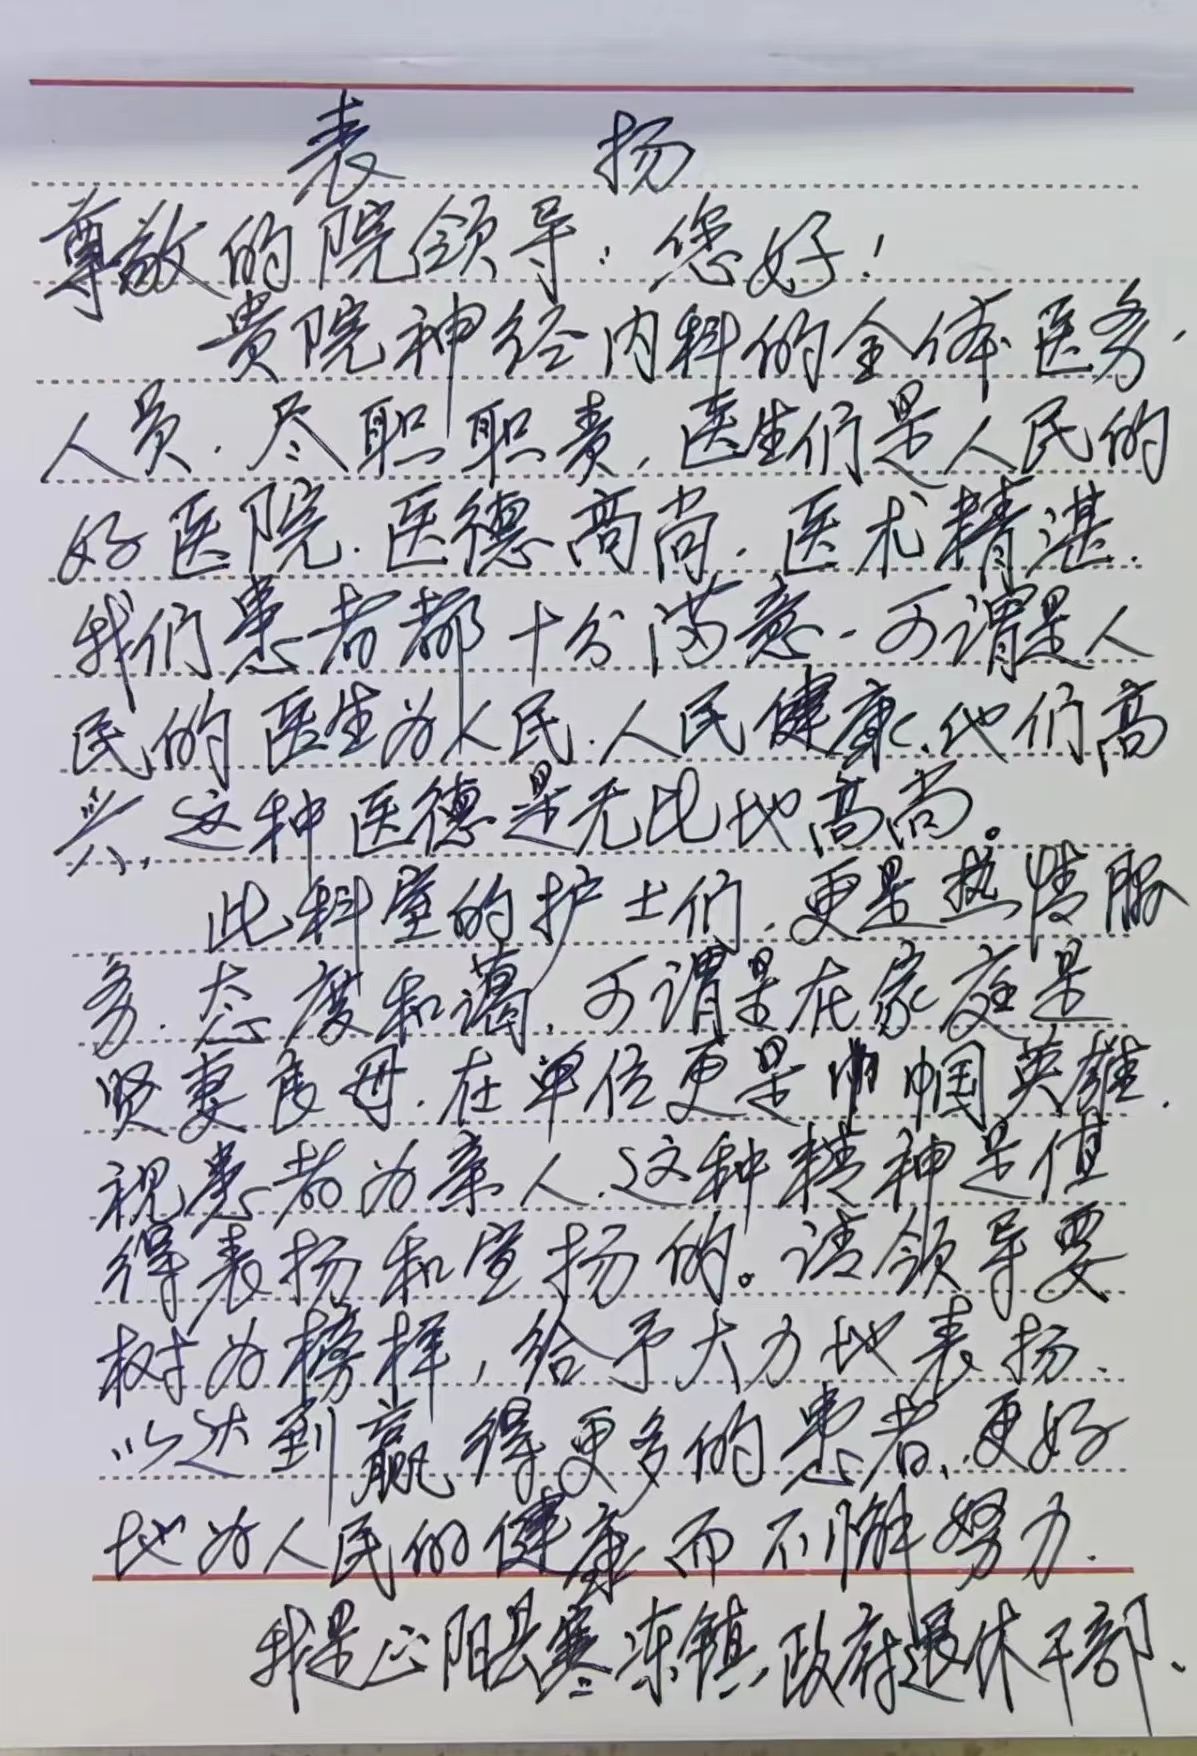 表 扬
尊敬的院领导：您好！
贵院神经内科的全体医务
人员．尽职职责，医生们是人民的
好医院．医德高尚．医术精湛．
我们患者都十分满意．可谓是人
民的医生为人民．人民健康，他们高
兴，这种医德是无比地高尚。
此科室的护士们，更是热情服
务．态度和蔼，可谓是在家庭是
贤妻良母．在单位更是巾帼英雄．
视患者为亲人．这种精神是值
得表扬和宣扬的。请领导要
树为榜样，给予大力地表扬．
以达到赢得更多的患者，更好
地为人民的健康而不懈努力．
我是正阳县寒冻镇政府退休干部．